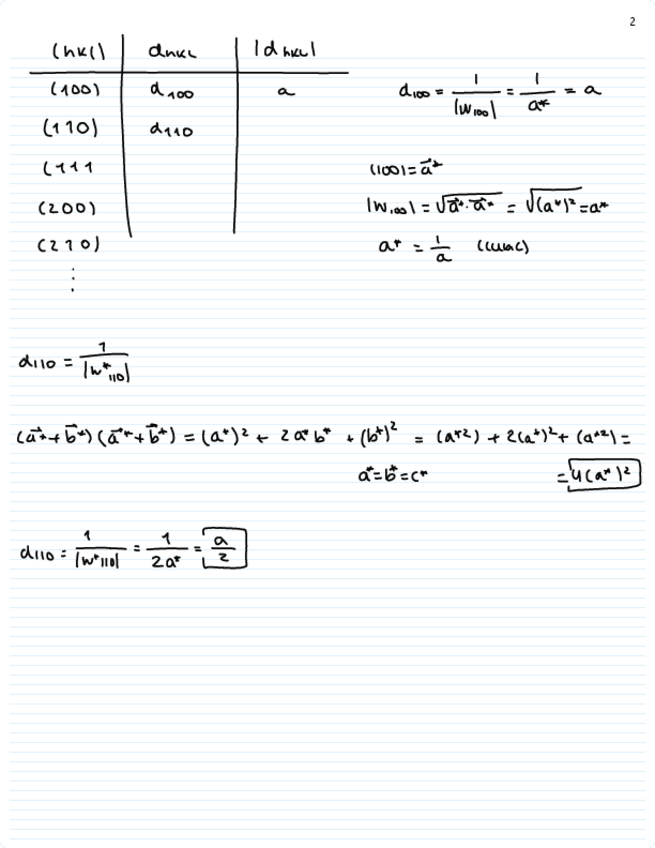 2
(hkl) dhkl |dhkl|
(100) d100 a
d100 = 1/|W100| = 1/a* = a
(110) d110
(111
(100) = a⃗*
(200)
|W100| = √(a⃗*·a⃗*) = √(a*)² = a*
(210)
a* = 1/a
⋮
d110 = 1/|w*110|
(a⃗*+b⃗*)(a⃗*+b⃗*) = (a*)² + 2a*b* + (b*)² = (a*²) + 2(a*)² + (a*²) =
a*=b*=c* = 4(a*)²
d110 = 1/|w*110| = 1/2a* = a/2